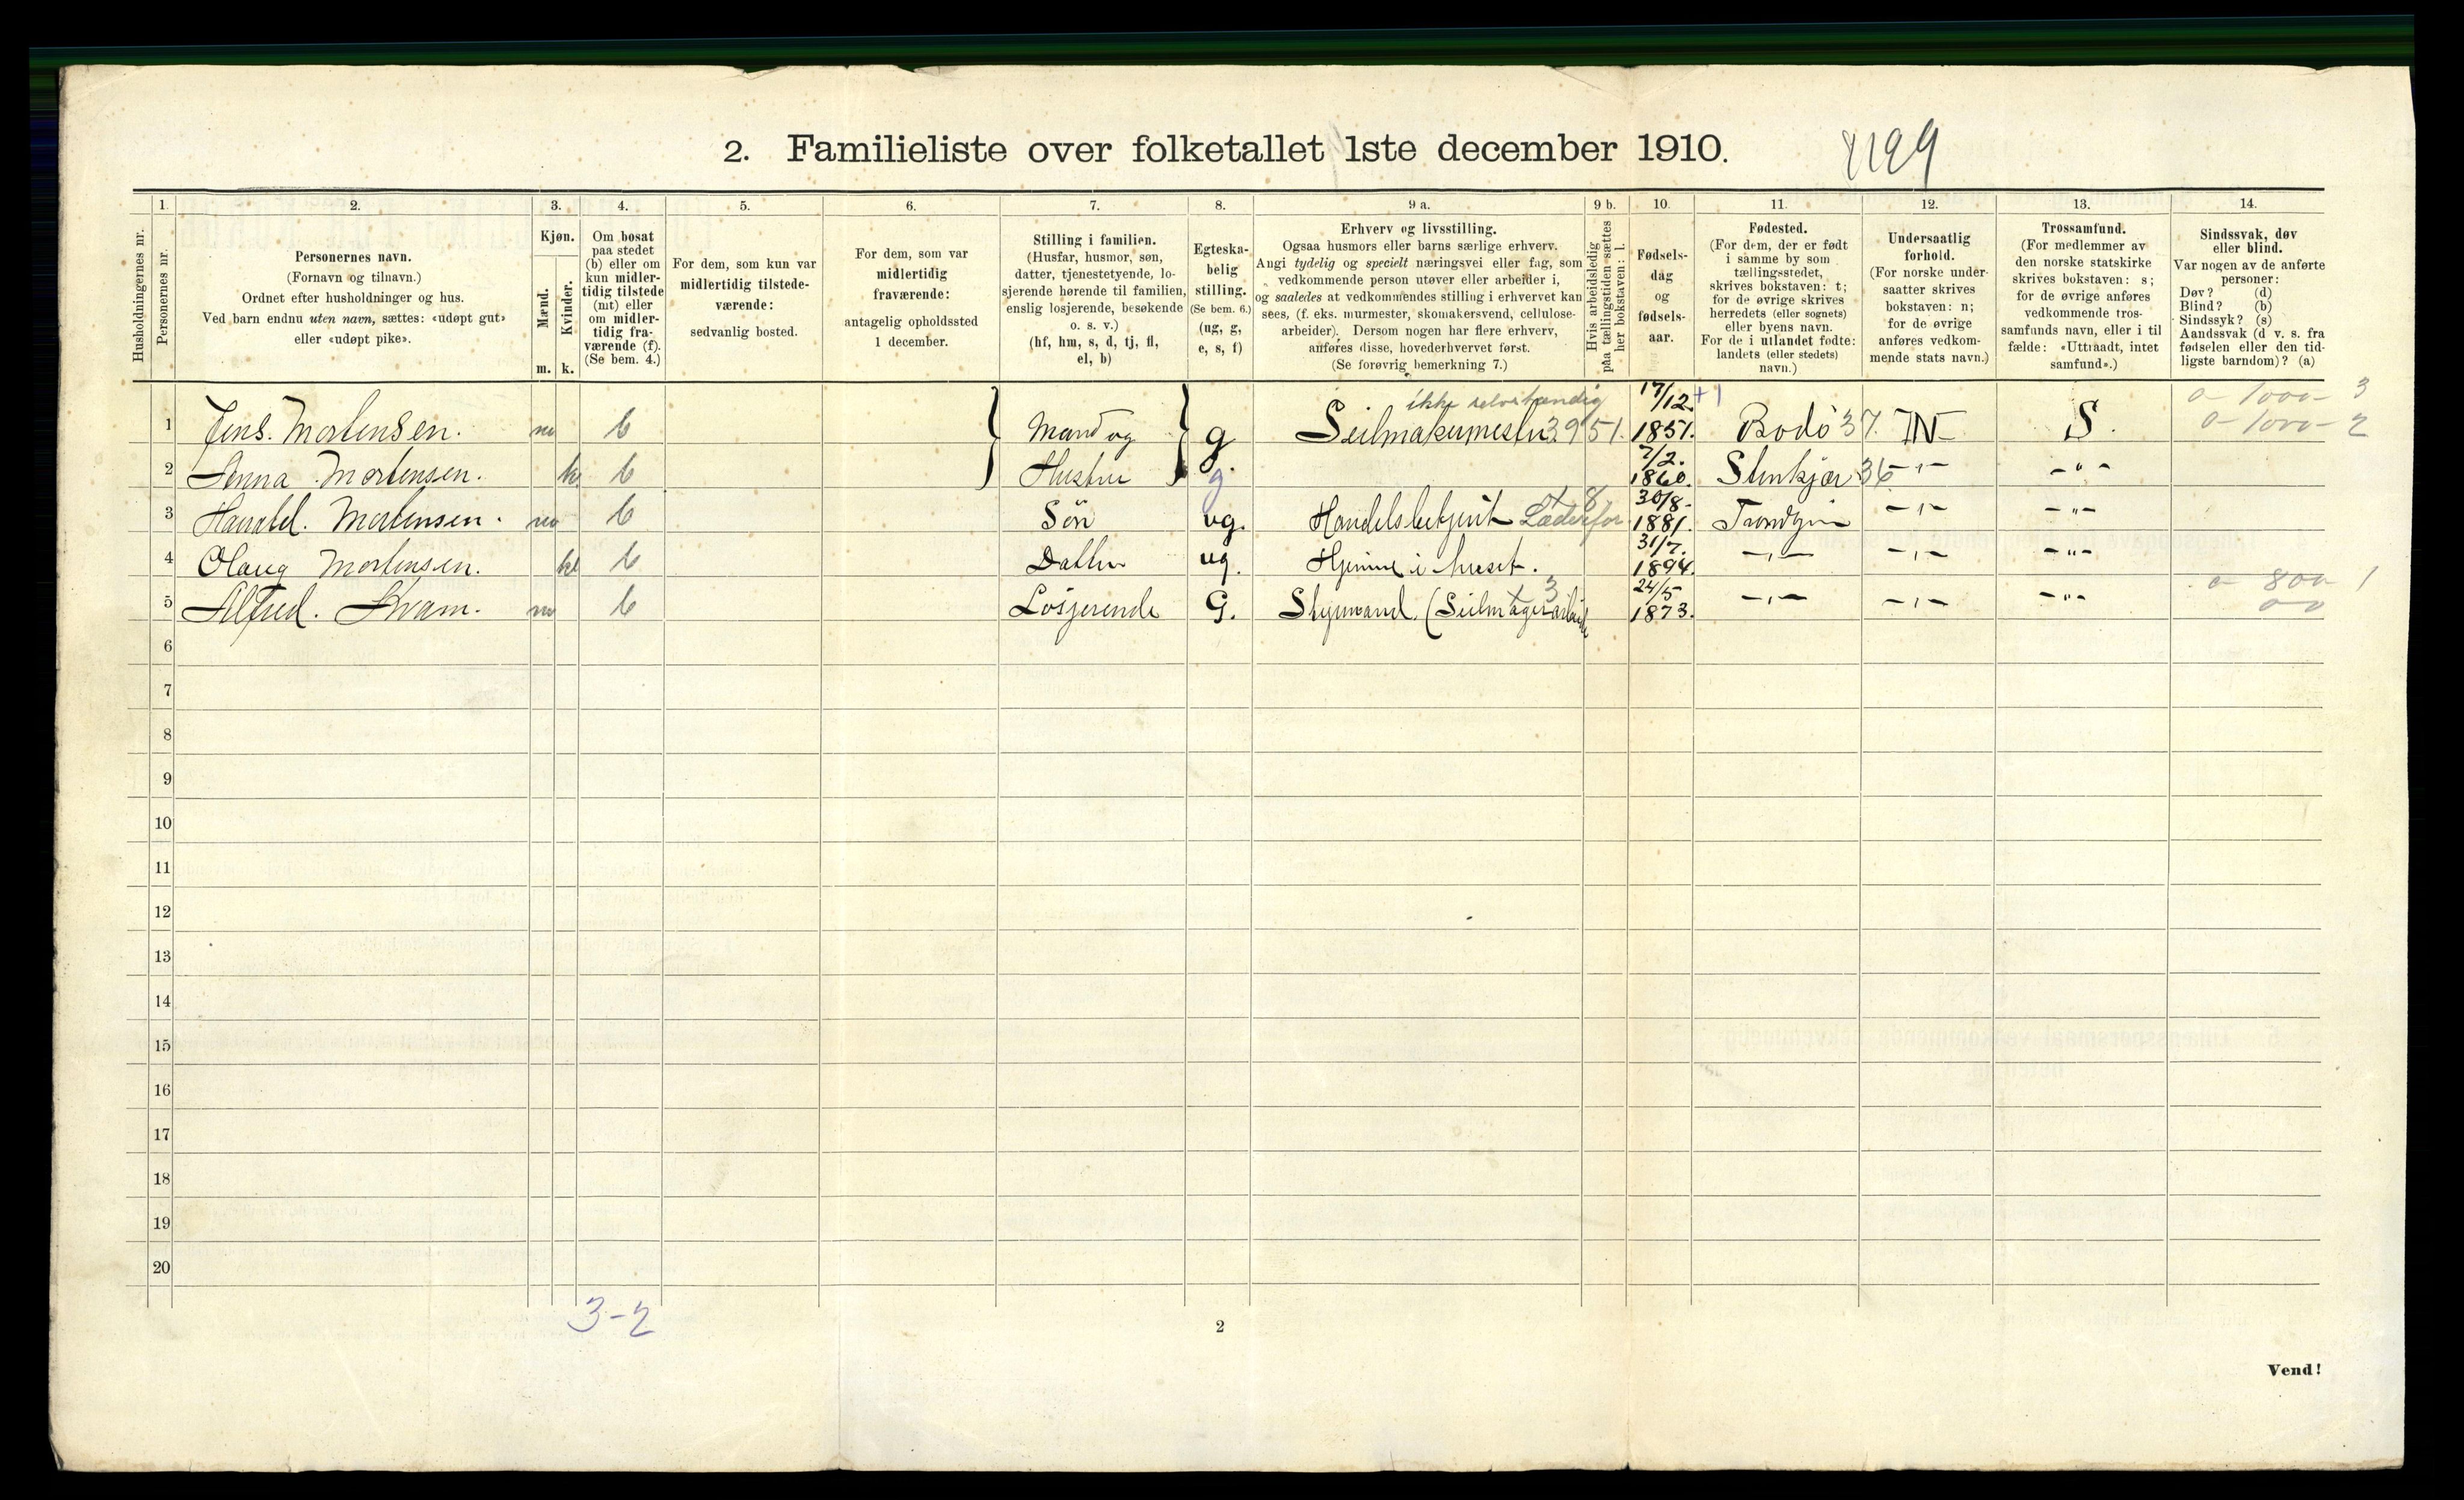 2. Familieliste over folketallet 1ste december 1910.
1199
Husholdningernes nr.
1.
Personernes nr.
2.
Personernes navn.
(Fornavn og tilnavn.)
Ordnet efter husholdninger og hus.
Ved barn endnu uten navn, sættes: «udøpt gut»
eller «udøpt pike».
3.
Kjøn.
Mænd.
Kvinder.
m. k.
4.
Om bosat
paa stedet
(b) eller om
kun midler-
tidig tilstede
(mt) eller
om midler-
tidig fra-
værende (f).
(Se bem. 4.)
5.
For dem, som kun var
midlertidig tilstede-
værende:
sedvanlig bosted.
6.
For dem, som var
midlertidig
fraværende:
antagelig opholdssted
1 december.
7.
Stilling i familien.
(Husfar, husmor, søn,
datter, tjenestetyende, lo-
sjerende hørende til familien,
enslig losjerende, besøkende
o. s. v.)
(hf, hm, s, d, tj, fl,
el, b)
8.
Egteska-
belig
stilling.
(Se bem. 6.)
(ug, g,
e, s, f)
9 a.
Erhverv og livsstilling.
Ogsaa husmors eller barns særlige erhverv.
Angi tydelig og specielt næringsvei eller fag, som
vedkommende person utøver eller arbeider i,
og saaledes at vedkommendes stilling i erhvervet kan
sees, (f. eks. murmester, skomakersvend, cellulose-
arbeider). Dersom nogen har flere erhverv,
anføres disse, hovederhvervet først.
(Se forøvrig bemerkning 7.)
9 b.
Hvis arbeidsledig
paa tællingstiden sættes
her bokstaven: l.
10.
Fødsels-
dag
og
fødsels-
aar.
11.
Fødested.
(For dem, der er født
i samme by som
tællingsstedet,
skrives bokstaven: t;
for de øvrige skrives
herredets (eller sognets)
eller byens navn.
For de i utlandet fødte:
landets (eller stedets)
navn.)
12.
Undersaatlig
forhold.
(For norske under-
saatter skrives
bokstaven: n;
for de øvrige
anføres vedkom-
mende stats navn.)
13.
Trossamfund.
(For medlemmer av
den norske statskirke
skrives bokstaven: s;
for de øvrige anføres
vedkommende tros-
samfunds navn, eller i til
fælde: «Uttraadt, intet
samfund».)
14.
Sindssvak, døv
eller blind.
Var nogen av de anførte
personer:
Døv? (d)
Blind? (b)
Sindssyk? (s)
Aandssvak (d v. s. fra
fødselen eller den tid-
ligste barndom)? (a)
ikke selvstændig 17/12. +1 0-1000-3
1 Jens. Mortensen. m b Mand og g Seilmakermester 3951. 1851. Bodö 37. N S. 0-1000-2
7/2.
2 Anna Mortensen. k b Hustru g 1860. Stenkjær 36 -"- -"-
30/8.
3 Mortensen. m b Sön ug. Handelsbetjent 1881. Trondhjem -"- -"-
31/7.
4 Olaug Mortensen. k b Datter ug. Hjemme i huset. 1894. -"- -"- -"-
3 24/5 0-800-1
5 Alfred. Kvam. m b Losjerende G. Styrmand. (Seilmagerarbeide 1873. -"- -"- -"- 00
6
7
8
9
10
11
12
13
14
15
16
17
18
19
20
3-2
2
Vend!